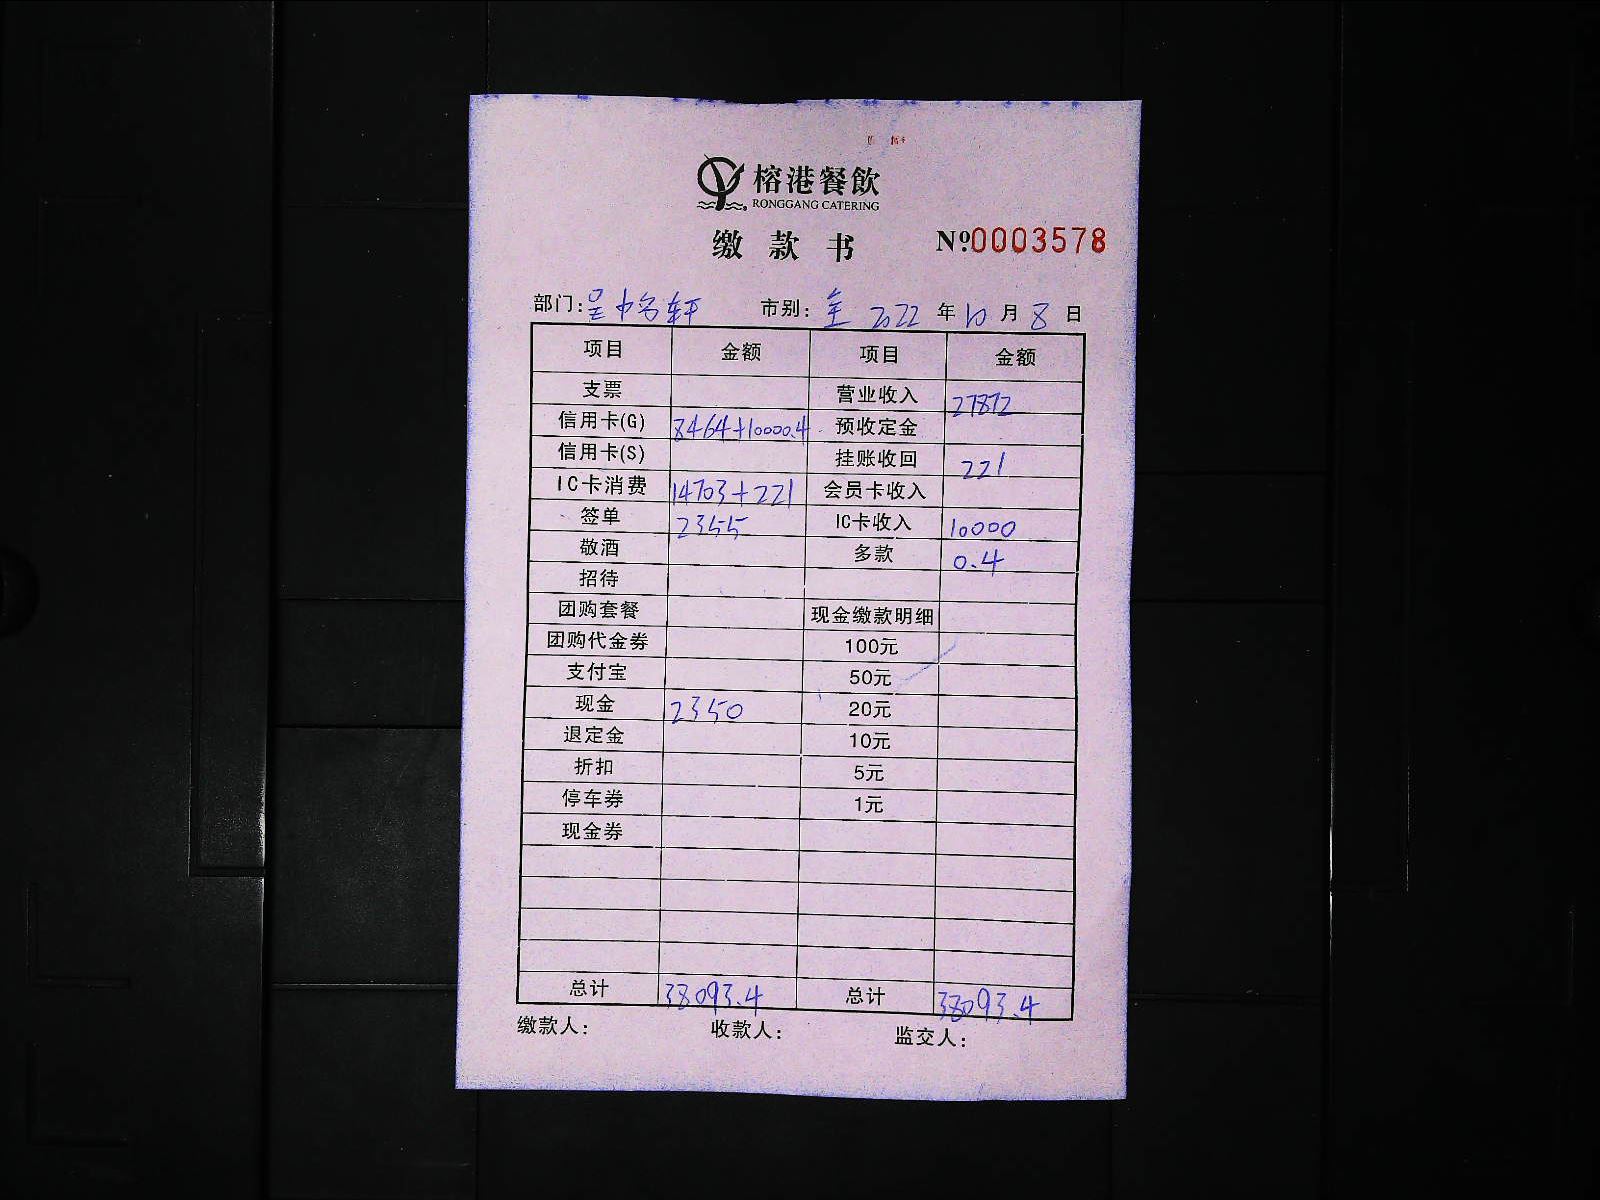 榕港餐飲
RONGGANG CATERING
缴款书 №0003578
部门: 市别: 全 2022年10月8日
项目 金额 项目 金额
支票 营业收入 27872
信用卡(G) 8464+10000.4 预收定金
信用卡(S) 挂账收回 221
IC卡消费 14703+221 会员卡收入
签单 2355 IC卡收入 10000
敬酒 多款 0.4
招待
团购套餐 现金缴款明细
团购代金券 100元
支付宝 50元
现金 2350 20元
退定金 10元
折扣 5元
停车券 1元
现金券
总计 38093.4 总计 38093.4
缴款人: 收款人: 监交人: